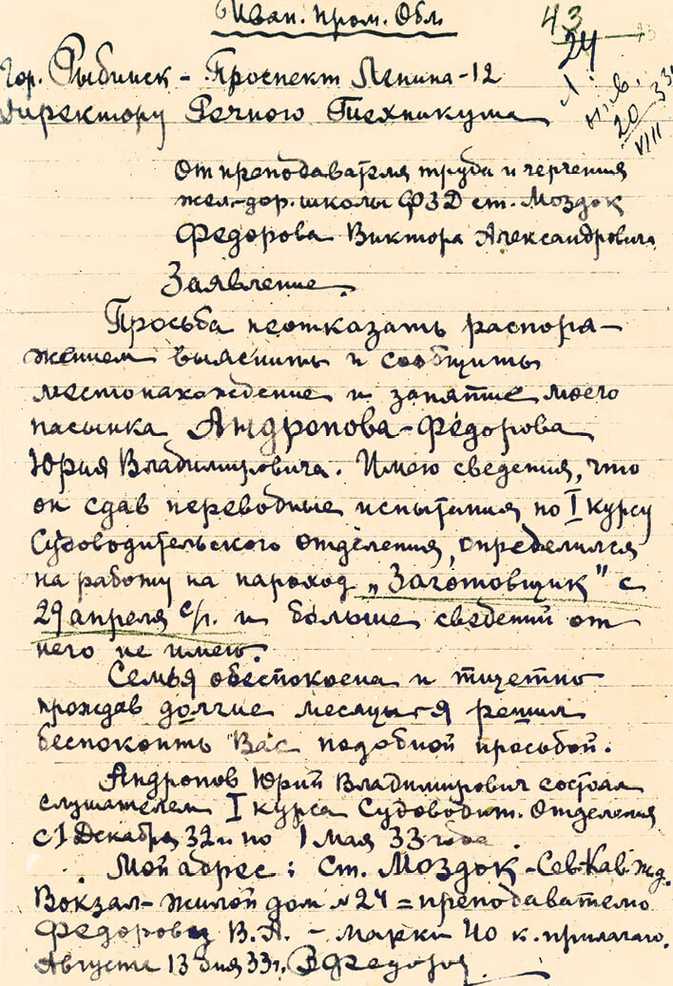 Иван. пром. Обл.
43
24
Гор. Рыбинск - Проспект Ленина - 12
Директору Речного Техникума
20/VIII 33
От преподавателя труда и черчения
жел-дор. школы ФЗД ст. Моздок
Федорова Виктора Александровича
Заявление.
Просьба неотказать распоря-
жением выяснить и сообщить
местонахождение и занятие моего
пасынка Андропова-Федорова
Юрия Владимировича. Имею сведения, что
он сдав переводные испытания по I курсу
Судоводительского отделения, определился
на работу на пароход „Заготовщик" с
29 апреля с/г. и больше сведений от
него не имею.
Семья обеспокоена и тщетно
прождав долгие месяцы я решил
беспокоить Вас подобной просьбой.
Андропов Юрий Владимирович состоял
слушателем I курса Судоводит. Отделения
с 1 Декабря 32 г. по 1 мая 33 года.
Мой адрес: Ст. Моздок - Сев-Кав. жд.
Вокзал - жилой дом № 24 = преподавателю
Федорову В. А. - марки 40 к. прилагаю.
Августа 13 дня 33 г. ВФедоров